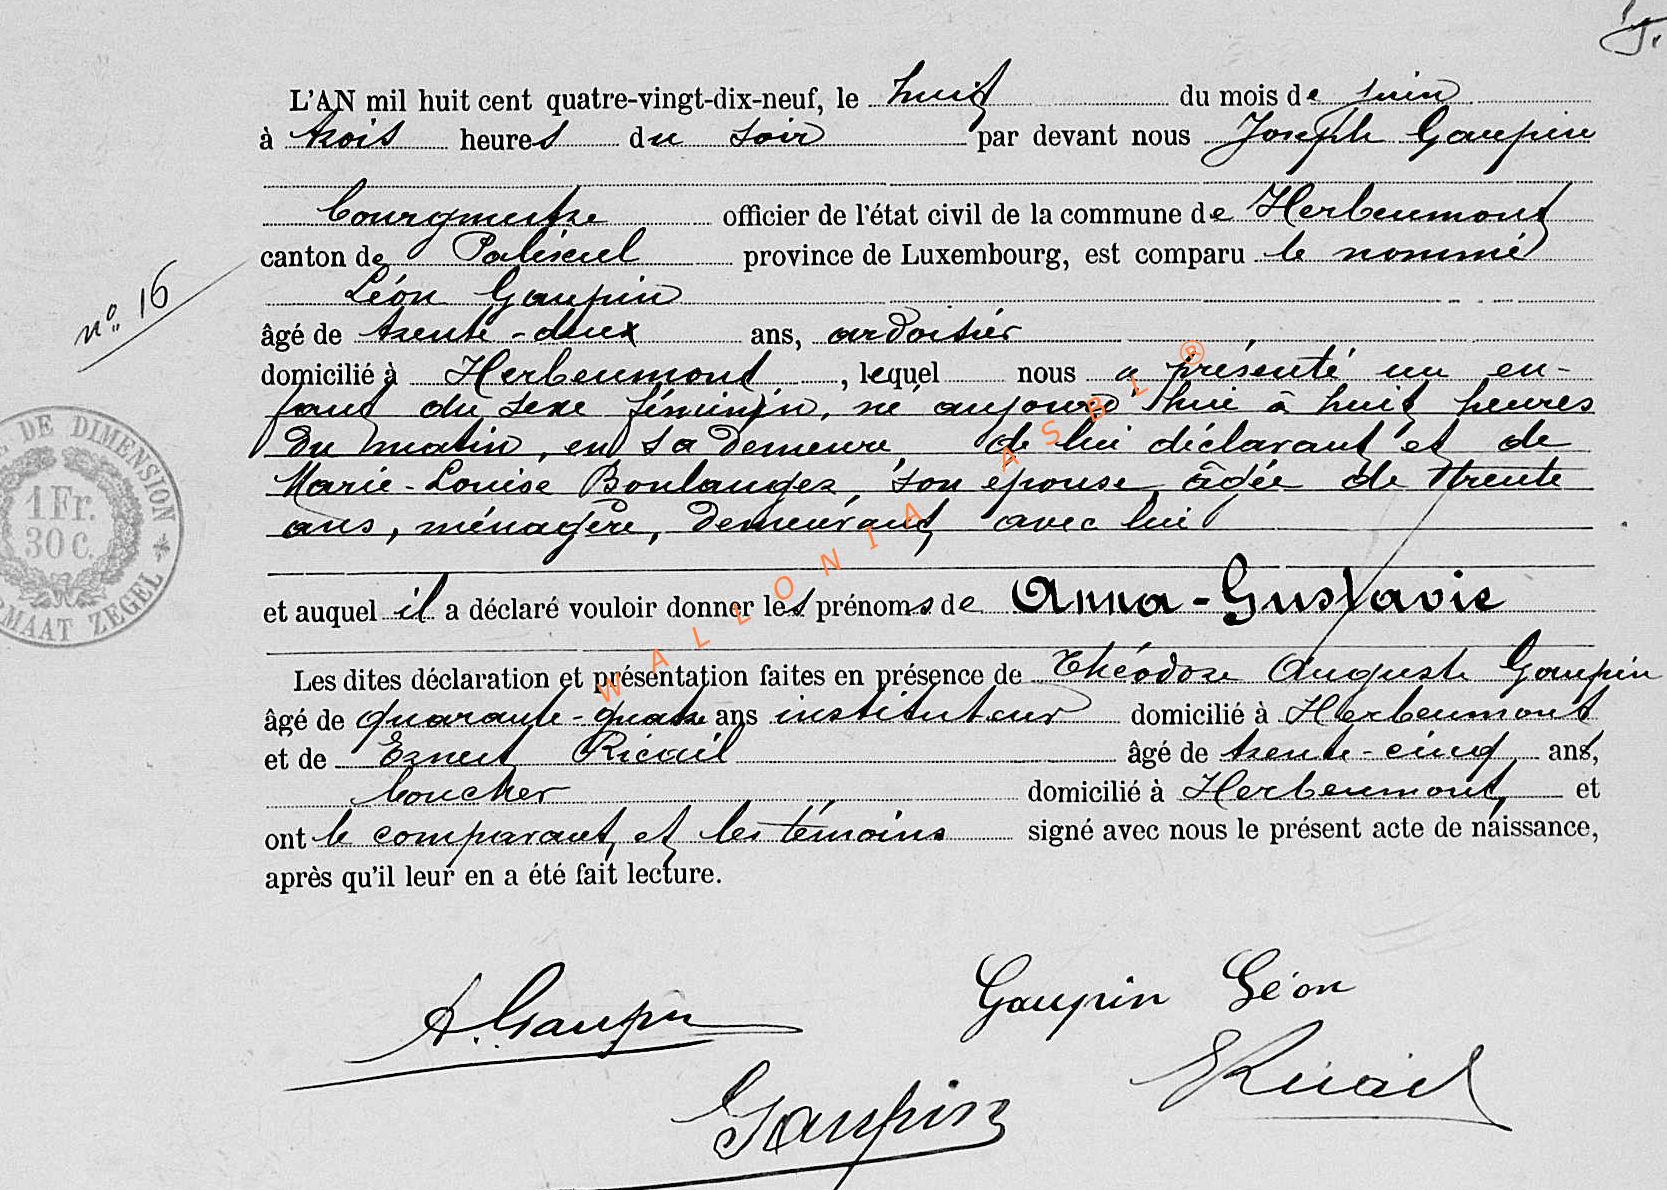 L'AN mil huit cent quatre-vingt-dix-neuf, le huit du mois de juin
à trois heures du soir par devant nous Joseph Gaupin
bourgmestre officier de l'état civil de la commune de Herbeumont
canton de Paliseul province de Luxembourg, est comparu le nommé
n° 16
Léon Gaupin
âgé de trente-deux ans, ardoisier
domicilié à Herbeumont, lequel nous a présenté un en-
fant du sexe féminin, né aujourd'hui à huit heures
du matin, en sa demeure, de lui déclarant et de
Marie-Louise Boulanger, son épouse âgée de trente
ans, ménagère, demeurant avec lui
et auquel il a déclaré vouloir donner les prénoms de Anna-Gustavie
Les dites déclaration et présentation faites en présence de Théodore Auguste Gaupin
âgé de quarante-quatre ans instituteur domicilié à Herbeumont
et de Ernest Ricail âgé de trente-cinq ans,
boucher domicilié à Herbeumont, et
ont le comparant et les témoins signé avec nous le présent acte de naissance,
après qu'il leur en a été fait lecture.
A. Gaupin
Gaupin Léon
ERicail
Gaupin
DE DIMENSION
1 Fr.
30 C.
MAAT ZEGEL
WALLONIA ASBL ®